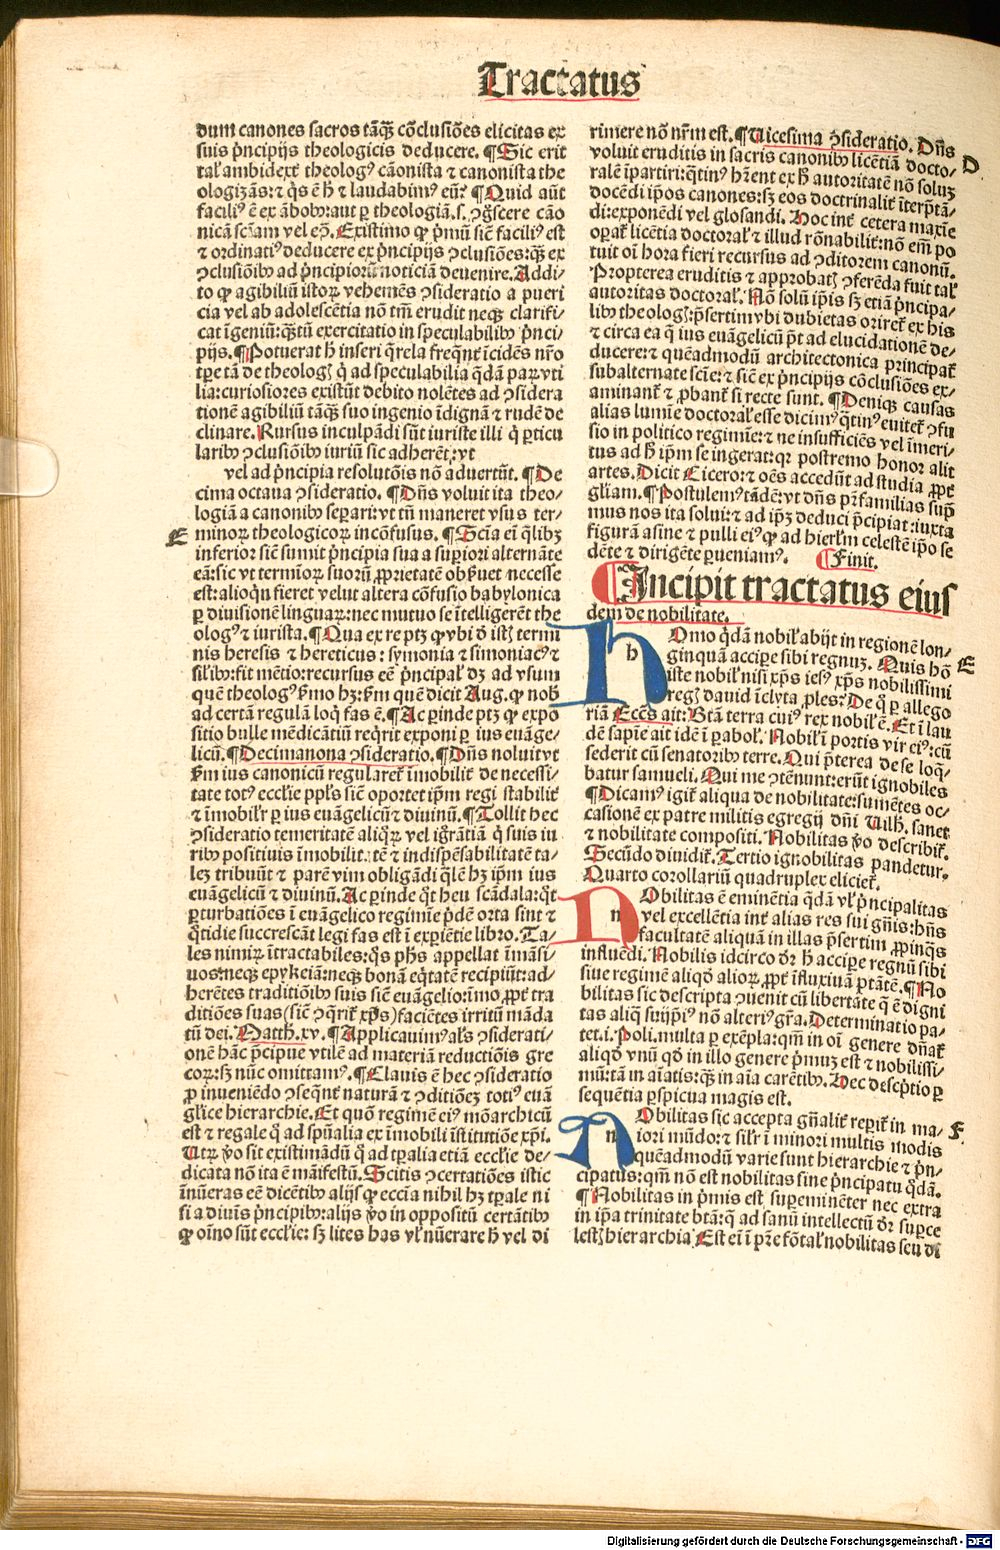 Tractatus
dum canones sacros tāq̄ʒ cōclusiōes elicitas ex
suis p̄ncipijs theologicis deducere. ¶Sic erit
tal' ambidext̄ theologꝰ cānonista ⁊ canonista the
ologizās: ⁊ q̄s ē h̄ ⁊ laudabimꝰ eū? ¶Quid aūt
faciliꝰ ē ex ābobꝰ: aut ꝑ theologiā .s. ꝯḡscere cāo
nicā sc̄iam vel eↄ̄. Existimo ꝙ pͥmū sic̄ faciliꝰ est
⁊ ordinatiꝰ deducere ex p̄ncipijs ꝯclusiōes: q̄ʒ ex
ꝯclusiōibꝰ ad p̄ncipiorū noticiā deuenire. Addi⸗
to ꝙ agibiliū istoꝝ vehemēs ꝯsideratio a pueri
cia vel ab adolescētia nō tm̄ erudit neqʒ clarifi⸗
cat īgeniū: q̄ʒtū exercitatio in speculabilibꝰ p̄nci⸗
pijs. ¶Potuerat h̄ inseri q̄rela freq̄nt̄ īcidēs nr̄o
tꝑe tā de theologꝭ q̄ ad speculabilia q̄dā paꝝ vti
lia: curiosiores existūt debito nolētes ad ꝯsidera
tionē agibiliū tāq̄ʒ suo ingenio īdignā ⁊ rudē de
clinare. Rursus inculpādi sūt iuriste illi q̄ ꝑticu
laribꝰ ꝯclusiōibꝰ iuriū sic adherēt: vt
vel ad p̄ncipia resolutōis nō aduertūt. ¶De
cima octaua ꝯsideratio. ¶Dn̄s voluit ita theo⸗
logiā a canonibꝰ seꝑari: vt tū maneret vsus ter⸗
E minoꝝ theologicoꝝ incōfusus. ¶Sc̄ia ei q̄libʒ
inferior sic̄ sumit p̄ncipia sua a suꝑiori alternāte
eā: sic vt termīoꝝ suoꝝ ꝓprietatē obẜuet necesse
est: alioqn̄ fieret velut altera cōfusio babylonica
ꝑ diuisionē linguaꝝ: nec mutuo se ītelligerēt the
ologꝰ ⁊ iurista. ¶Qua ex re ptʒ ꝙ vbi ō istꝭ termi
nis heresis ⁊ hereticus: symonia ⁊ simoniacꝰ ⁊
sīlibꝰ: fit mētio: recursus eē p̄ncipal' dʒ ad vsum
quē theologꝰ ẜmo hʒ: ẜm quē dicit Aug. ꝙ nob̄
ad certā regulā loq̄ fas ē. ¶Ac ꝑinde ptʒ ꝙ expo
sitio bulle mēdicātiū reqͥrit exponi ꝑ ius euāge⸗
licū. ¶Decimanona ꝯsideratio. ¶Dn̄s noluit vt
ẜm ius canonicū regularet̄ īmobilit̄ de necessi⸗
tate totꝰ eccl̄ie ppl̄s sic̄ oportet ip̄m regi stabilit̄
⁊ īmobilr̄ ꝑ ius euāgelicū ⁊ diuinū. ¶Tollit hec
ꝯsideratio temeritatē aliq̄ꝝ vel iḡrātiā q̄ suis iu
ribꝰ positiuis īmobilitatē ⁊ indispēsabilitatē ta⸗
leʒ tribuūt ⁊ parē vim obligādi q̄lē hʒ ip̄m ius
euāgelicū ⁊ diuinū. Ac ꝑinde q̄t heu scādala: q̄t
ꝑturbatiōes ī euāgelico regimīe p̄dē orta sint ⁊
q̄tidie succrescāt legi fas est ī exꝑiētie libro. Ta⸗
les nimiꝝ ītractabiles: q̄s ph̄s appellat īmāsi⸗
uos: neqʒ epykeiā: neqʒ bonā eq̄tatē recipiūt: ad⸗
herētes traditiōibꝰ suis sic̄ euāgelio: īmo ꝓpt̄ tra
ditiōes suas (sic̄ ꝯq̄rit̄ xp̄s) faciētes irritū māda
tū dei. Matth. xv. ¶Applicauimꝰ al's ꝯsiderati⸗
onē hāc p̄cipue vtilē ad materiā reductiōis gre
coꝝ: sʒ nūc omittamꝰ. ¶Clauis ē hec ꝯsideratio
ꝓ inueniēdo ꝯseq̄nt̄ naturā ⁊ ꝯditiōeʒ totiꝰ euā
gl̄ice hierarchie. Et quō regimē eiꝰ mōarchicū
est ⁊ regale q̄ ad sp̄ualia ex īmobili īstitutiōe xp̄i.
Utꝝ v̄o sit existimādū q̄ ad tꝑalia etiā eccl̄ie de⸗
dicata nō ita ē maīfestū. Scitis ꝯcertatiōes istic
īnūeras eē dicētibꝰ alijs ꝙ eccīa nihil hʒ tꝑale ni
si a diuīs p̄ncipibꝰ: alijs v̄o in oppositū certātibꝰ
ꝙ oīno sūt eccl̄ie: sʒ lites has vl' nūerare h̄ vel di
rimere nō nr̄m est. ¶Uicesima ꝯsideratio. Dn̄s
voluit eruditis in sacris canonibꝰ licētiā docto⸗ D
ralē īpartiri: q̄tinꝰ hr̄ent ex h̄ autoritatē nō soluʒ
docēdi ip̄os canones: sʒ eos doctrinalit̄ īterp̄tā⸗
di: exponēdi vel glosandi. Hoc int̄ cetera maxīe
oꝑat̄ licētia doctoral' ⁊ illud rōnabilit̄: nō em̄ po
tuit oī hora fieri recursus ad ꝯditorem canonū.
Propterea eruditis ⁊ approbatꝭ ꝯferēda fuit tal'
autoritas doctoral'. Nō solū ip̄is sʒ etiā p̄ncipa⸗
libꝰ theologꝭ: p̄sertim vbi dubietas oriret̄ ex his
⁊ circa ea q̄ ius euāgelicū p̄t ad elucidationē de⸗
ducere: ⁊ quēadmodū architectonica principat̄
subalternate scīe: ⁊ sic̄ ex p̄ncipijs cōclusiōes ex⸗
aminant̄ ⁊ ꝓbant̄ si recte sunt. ¶Deniqʒ causas
alias lumīe doctoral' esse dicimꝰ q̄tinꝰ euitet̄ ꝯfu
sio in politico regimīe: ⁊ ne insufficiēs vel īmeri⸗
tus ad h̄ ip̄m se ingerat: qr postremo honor alit
artes. Dicit Cicero: ⁊ oēs accedūt ad studia ꝓpt̄
gl̄iam. ¶Postulemꝰ tādē: vt dn̄s pr̄familias sup̄
mus nos ita solui: ⁊ ad ip̄ʒ deduci p̄cipiat: iuxta
figurā asine ⁊ pulli eiꝰ q̄ ad hierl'm celestē ip̄o se
dēte ⁊ dirigēte ꝑueniamꝰ. ¶Finit.
¶Incipit tractatus eius
dem de nobilitate.
h Omo q̄dā nobil' abijt in regionē lon⸗
ginquā accipe sibi regnuʒ. Quis hō E
iste nobil' nisi xp̄s iesꝰ xp̄s nobilissimi
regꝭ dauid īclyta ꝓles? De q̄ ꝑ allego
riā Ecc̄s ait: Btā terra cuiꝰ rex nobil' ē. Et ī lau
dē sapīe ait idē ī ꝑabol'. Nobil' ī portis vir eiꝰ: cū
sederit cū senatoribꝰ terre. Qui p̄terea de se loq̄⸗
batur samueli. Qui me ꝯtēnunt: erūt ignobiles
¶Dicamꝰ igit̄ aliqua de nobilitate: sumētes oc⸗
casionē ex patre militis egregij dn̄i Uilh. sanet
⁊ nobilitate compositi. Nobilitas v̄o describit̄.
Secūdo diuidit̄. Tertio ignobilitas pandetur.
Quarto corollariū quadruplex eliciet̄.
n Obilitas ē eminētia q̄dā vl' p̄ncipalitas
vel excellētia int̄ alias res sui gn̄is: hn̄s
facultatē aliquā in illas p̄sertim ꝓpinq̄s
influēdi. Nobilis idcirco dr̄ h̄ accipe regnū sibi
siue regimē aliqd̄ alioꝝ, ꝓpt̄ īfluxiuā ptātē. ¶No
bilitas sic descripta ꝯuenit cū libertate q̄ ē digni
tas aliq̄ suijp̄iꝰ nō alteriꝰ gr̄a. Determinatio pa⸗
tet .i. Poli. multa ꝑ exēpla: qm̄ in oī genere dn̄at̄
aliqd̄ vnū qd̄ in illo genere p̄muʒ est ⁊ nobilissi⸗
mū: tā in aīatis: q̄ʒ in aīa carētibꝰ. Hec desc̄ptio ꝑ
sequētia ꝑspicua magis est.
n Obilitas sic accepta gn̄alit̄ reꝑit̄ in ma⸗ F
iori mūdo: ⁊ silr̄ ī minori multis modis
quēadmodū varie sunt hierarchie ⁊ p̄n⸗
cipatus: qm̄ nō est nobilitas sine p̄ncipatu q̄dā.
¶Nobilitas in p̄mis est suꝑeminēter nec extra
in ip̄a trinitate btā: q̄ ad sanū intellectū dr̄ suꝑce
lestꝭ hierarchia. Est ei ī pr̄e fōtal' nobilitas seu di
Digitalisierung gefördert durch die Deutsche Forschungsgemeinschaft - DFG